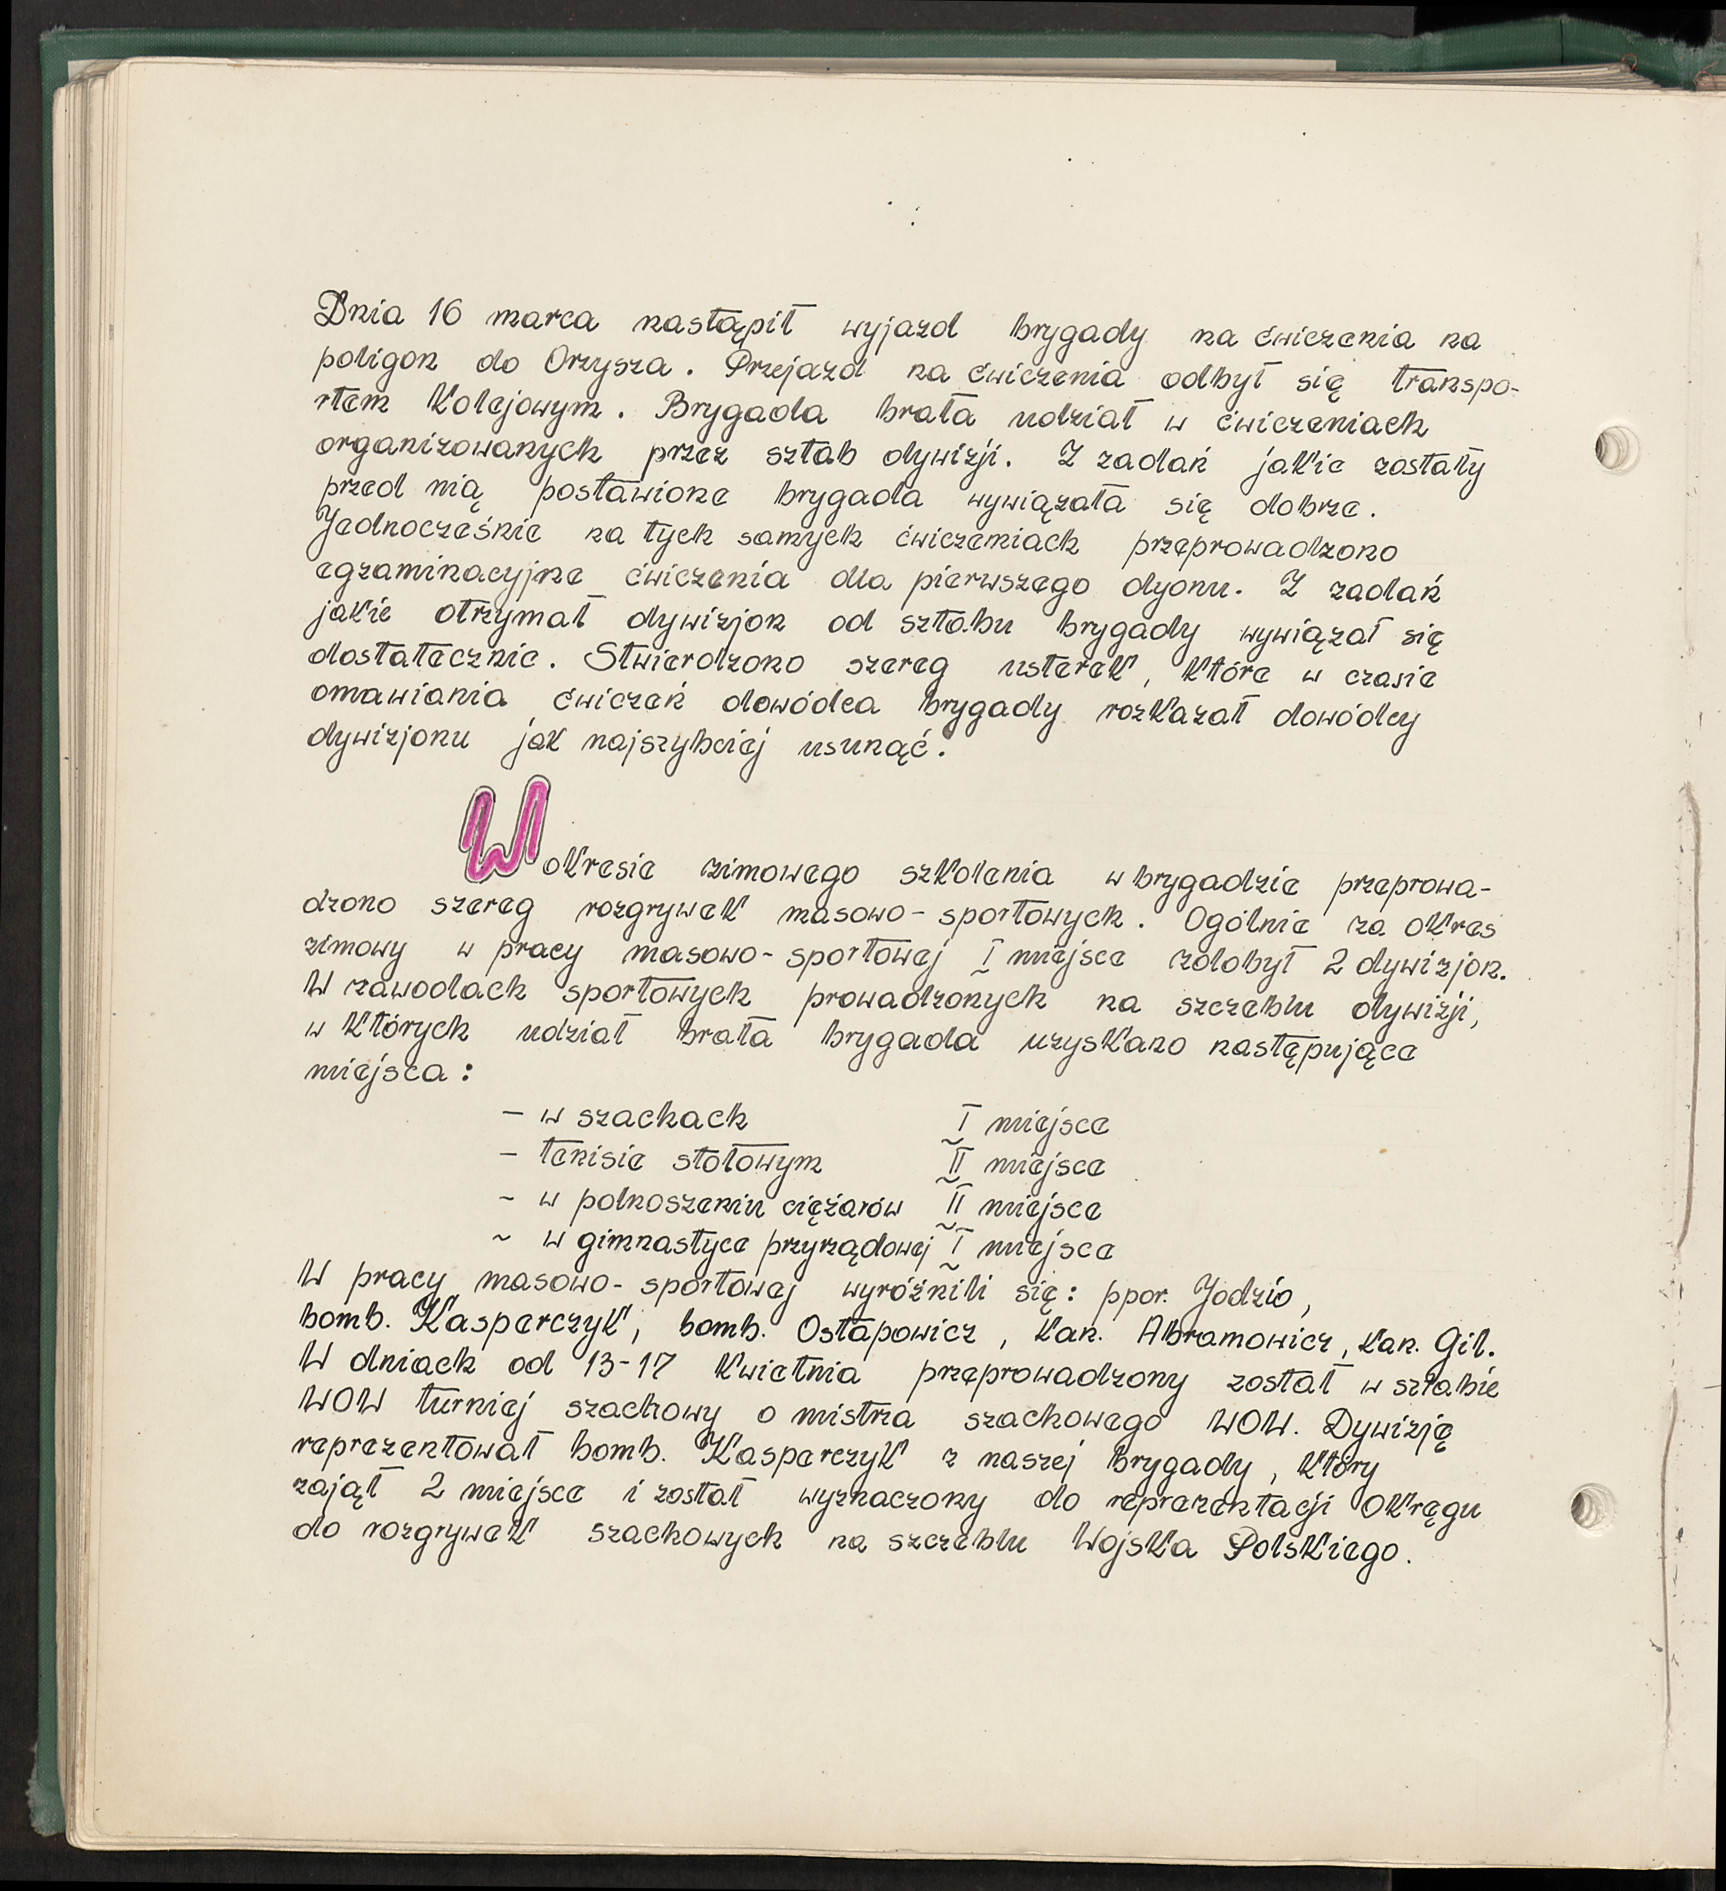 Dnia 16 marca nastąpił wyjazd brygady na ćwiczenia na
poligon do Orzysza. Przejazd na ćwiczenia odbył się transpo-
rtem kolejowym. Brygada brała udział w ćwiczeniach
organizowanych przez sztab dywizji. Z zadań jakie zostały
przed nią postawione brygada wywiązała się dobrze.
Jednocześnie na tych samych ćwiczeniach przeprowadzono
egzaminacyjne ćwiczenia dla pierwszego dyonu. Z zadań
jakie otrzymał dywizjon od sztabu brygady wywiązał się
dostatecznie. Stwierdzono szereg usterek, które w czasie
omawiania ćwiczeń dowódca brygady rozkazał dowódcy
dywizjonu jak najszybciej usunąć.
W okresie zimowego szkolenia w brygadzie przeprowa-
dzono szereg rozgrywek masowo-sportowych. Ogólnie za okres
zimowy w pracy masowo-sportowej I miejsce zdobył 2 dywizjon.
W zawodach sportowych prowadzonych na szczeblu dywizji,
w których udział brała brygada uzyskano następujące
miejsca:
- w szachach I miejsce
- tenisie stołowym II miejsce
- w podnoszeniu ciężarów II miejsce
- w gimnastyce przyrządowej I miejsce
W pracy masowo-sportowej wyróżnili się: ppor. Jodzio,
bomb. Kasperczyk, bomb. Ostapowicz, kan. Abramowicz, kan. Gil.
W dniach od 13-17 kwietnia przeprowadzony został w sztabie
WOW turniej szachowy o mistrza szachowego WOW. Dywizję
reprezentował bomb. Kasperczyk z naszej brygady, który
zajął 2 miejsce i został wyznaczony do reprezentacji Okręgu
do rozgrywek szachowych na szczeblu Wojska Polskiego.